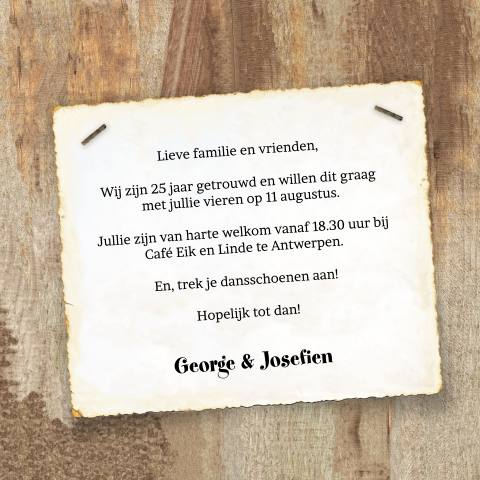 Lieve familie en vrienden,
Wij zijn 25 jaar getrouwd en willen dit graag
met jullie vieren op 11 augustus.
Jullie zijn van harte welkom vanaf 18.30 uur bij
Café Eik en Linde te Antwerpen.
En, trek je dansschoenen aan!
Hopelijk tot dan!
George & Josefien